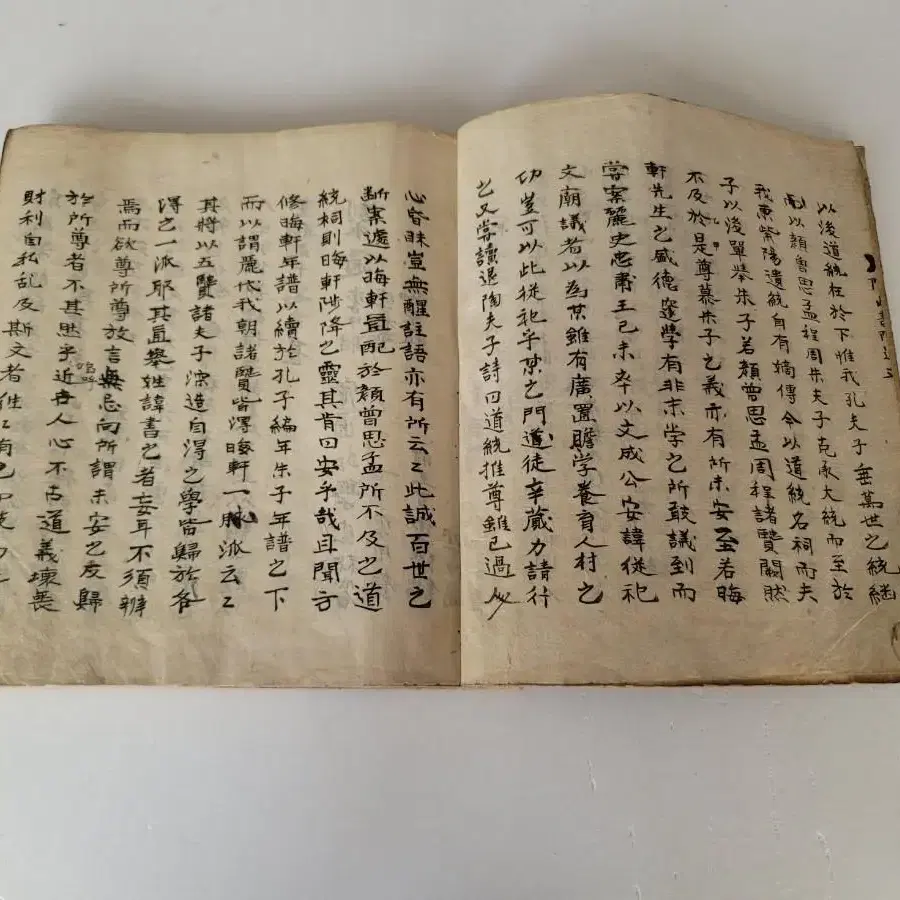 以後道統在於下惟我孔夫子垂萬世之統継
配以顔曾思孟程周朱夫子克承大統而至於
我東紫陽遺統自有嫡傳今以道統名祠而夫
子以後單擧朱子若顔曾思孟周程諸賢闕然
不及於是尊慕朱子之義亦有所未安至若晦
軒先生之盛德邃學有非末学之所敢議到而
嘗案麗史忠肅王己未卒以文成公安諱従祀
文廟議者以為某雖有廣置贍学養育人材之
功豈可以此従祀乎某之門徒辛蕆力請行
之又嘗讀退陶夫子詩曰道統推尊雖已過
心昏昧豈無醒註語亦有所云々此誠百世之
断案遽以晦軒直配於顔曾思孟所不及之道
統祠則晦軒陟降之靈其肯曰安乎哉且聞方
修晦軒年譜以續於孔子編年朱子年譜之下
而以謂麗代我朝諸賢皆得晦軒一脉派云々
其將以五賢諸夫子深造自得之學皆歸於各
得之一派耶其直擧姓諱書之者妄耳不須辨
焉而欲尊所尊放言無忌向所謂未安之友歸
於所尊者不其思乎嗚呼近世人心不古道義壞喪
財利自私乱及斯文者往々有之